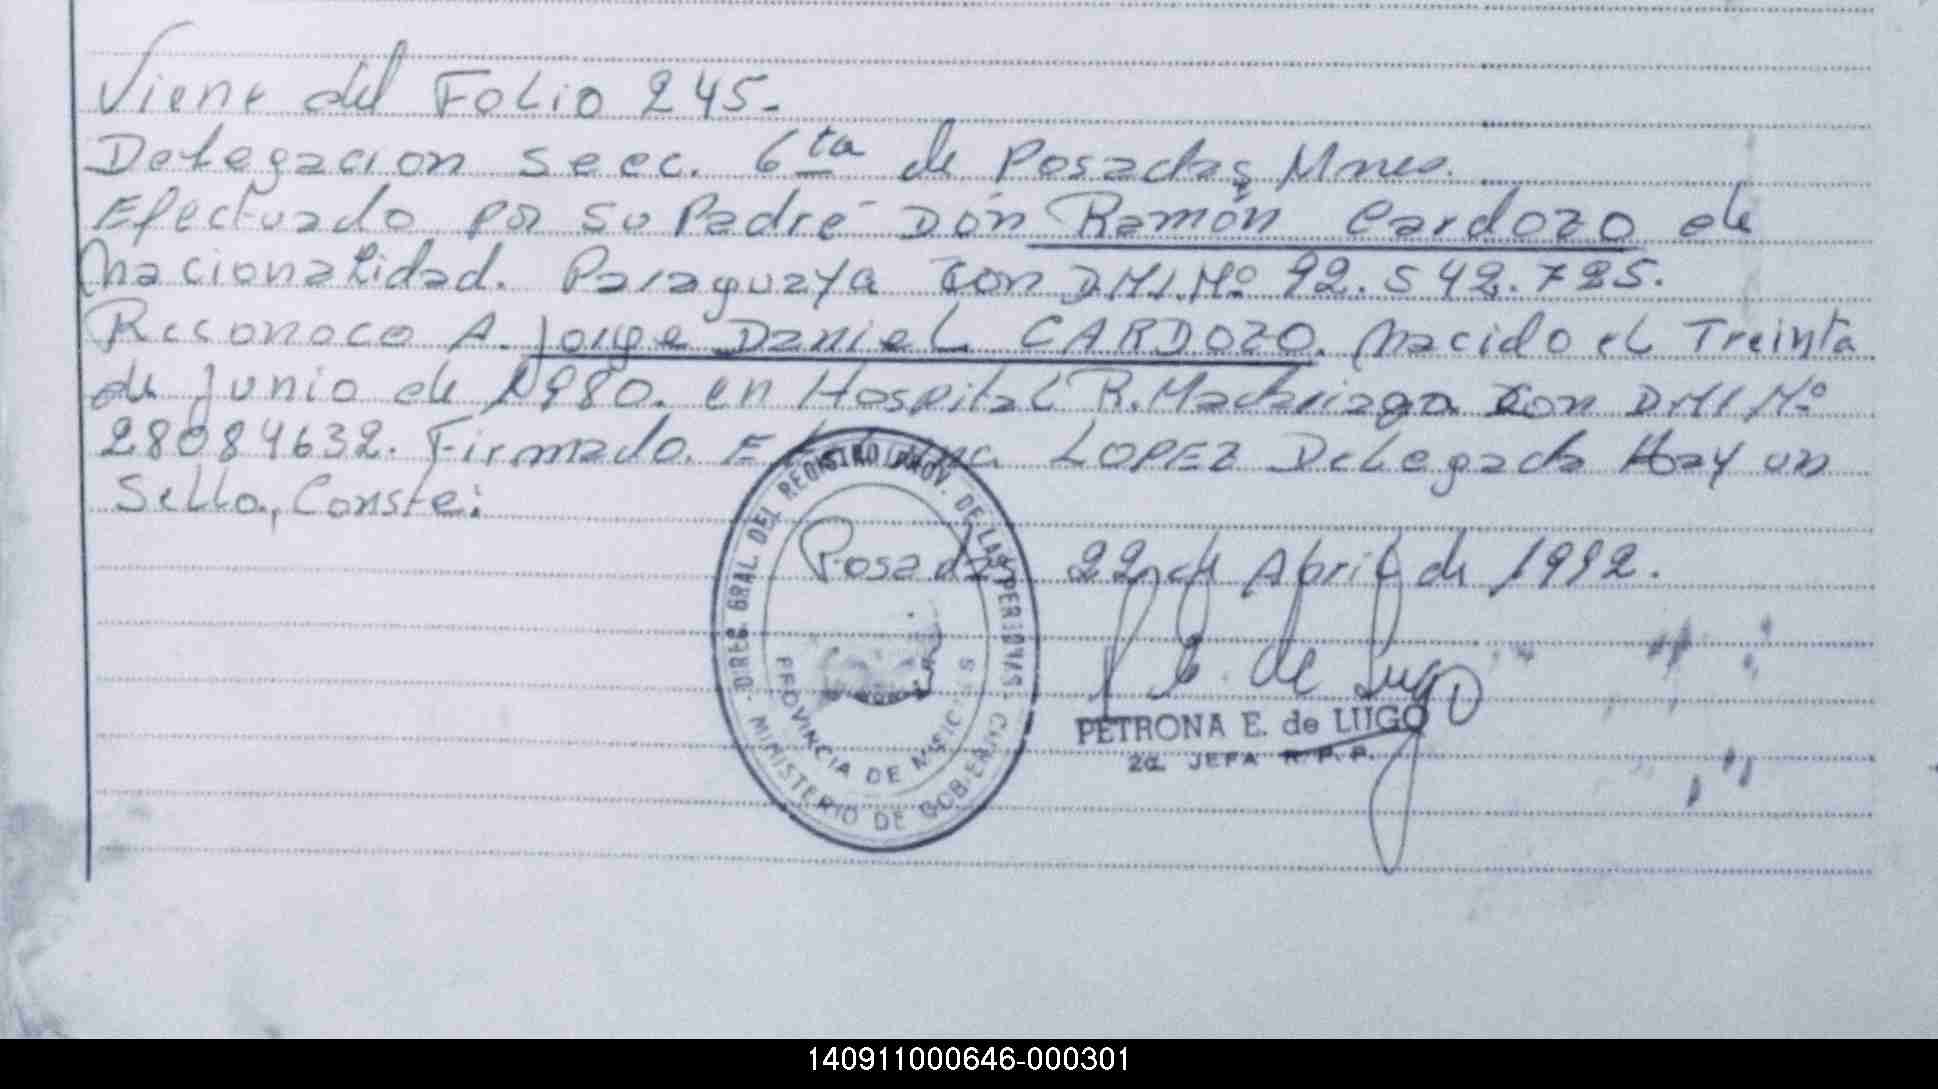 Viene del Folio 245.
Delegacion Secc. 6ta de Posadas, Mnes.
Efectuado por su Padre Don Ramón Cardozo de
Nacionalidad. Paraguaya con DNI.Nº 92.542.725.
Reconoce A. Jorge Daniel CARDOZO. Nacido el Treinta
de Junio de 1980. en Hospital R. Madariaga con DNI Nº
28084632. Firmado. LOPEZ Delegada Hay un
Sello, Conste:
Posadas 22 de Abril de 1992.
P. E. de Lugo
PETRONA E. de LUGO
2a. JEFA R.P.P.
DIREC. GRAL. DEL REGISTRO PROV. DE LAS PERSONAS
PROVINCIA DE MISIONES
MINISTERIO DE GOBIERNO
140911000646-000301